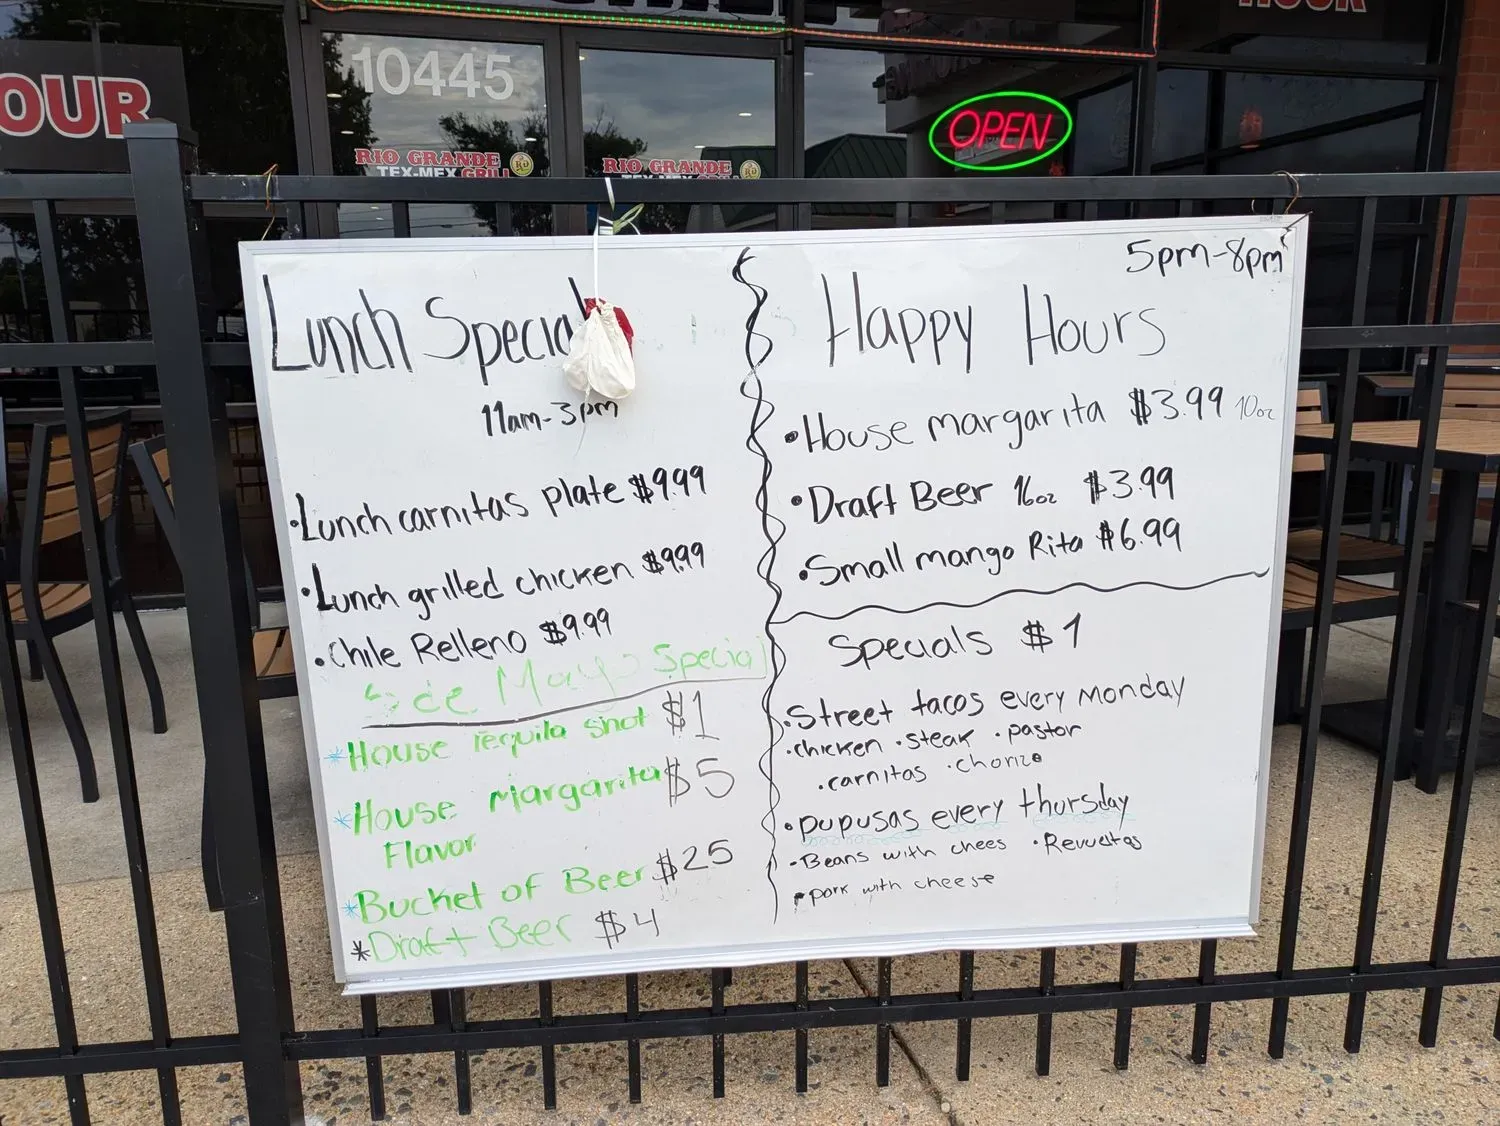 HOUR
OUR
10445
OPEN
RIO GRANDE
TEX-MEX GRILL
RIO GRANDE
TEX-MEX
Lunch Special
11am-3pm
•Lunch carnitas plate $9.99
•Lunch grilled chicken $9.99
•Chile Relleno $9.99
5 de Mayo Special
*House Tequila shot $1
*House Margarita $5
Flavor
*Bucket of Beer $25
*Draft Beer $4
5pm-8pm
Happy Hours
•House margarita $3.99 10oz
•Draft Beer 16oz $3.99
•Small mango Rita $6.99
Specials $1
•Street tacos every Monday
•chicken •steak •pastor
•carnitas •chorizo
•pupusas every thursday
•Beans with chees •Revueltas
•pork with cheese